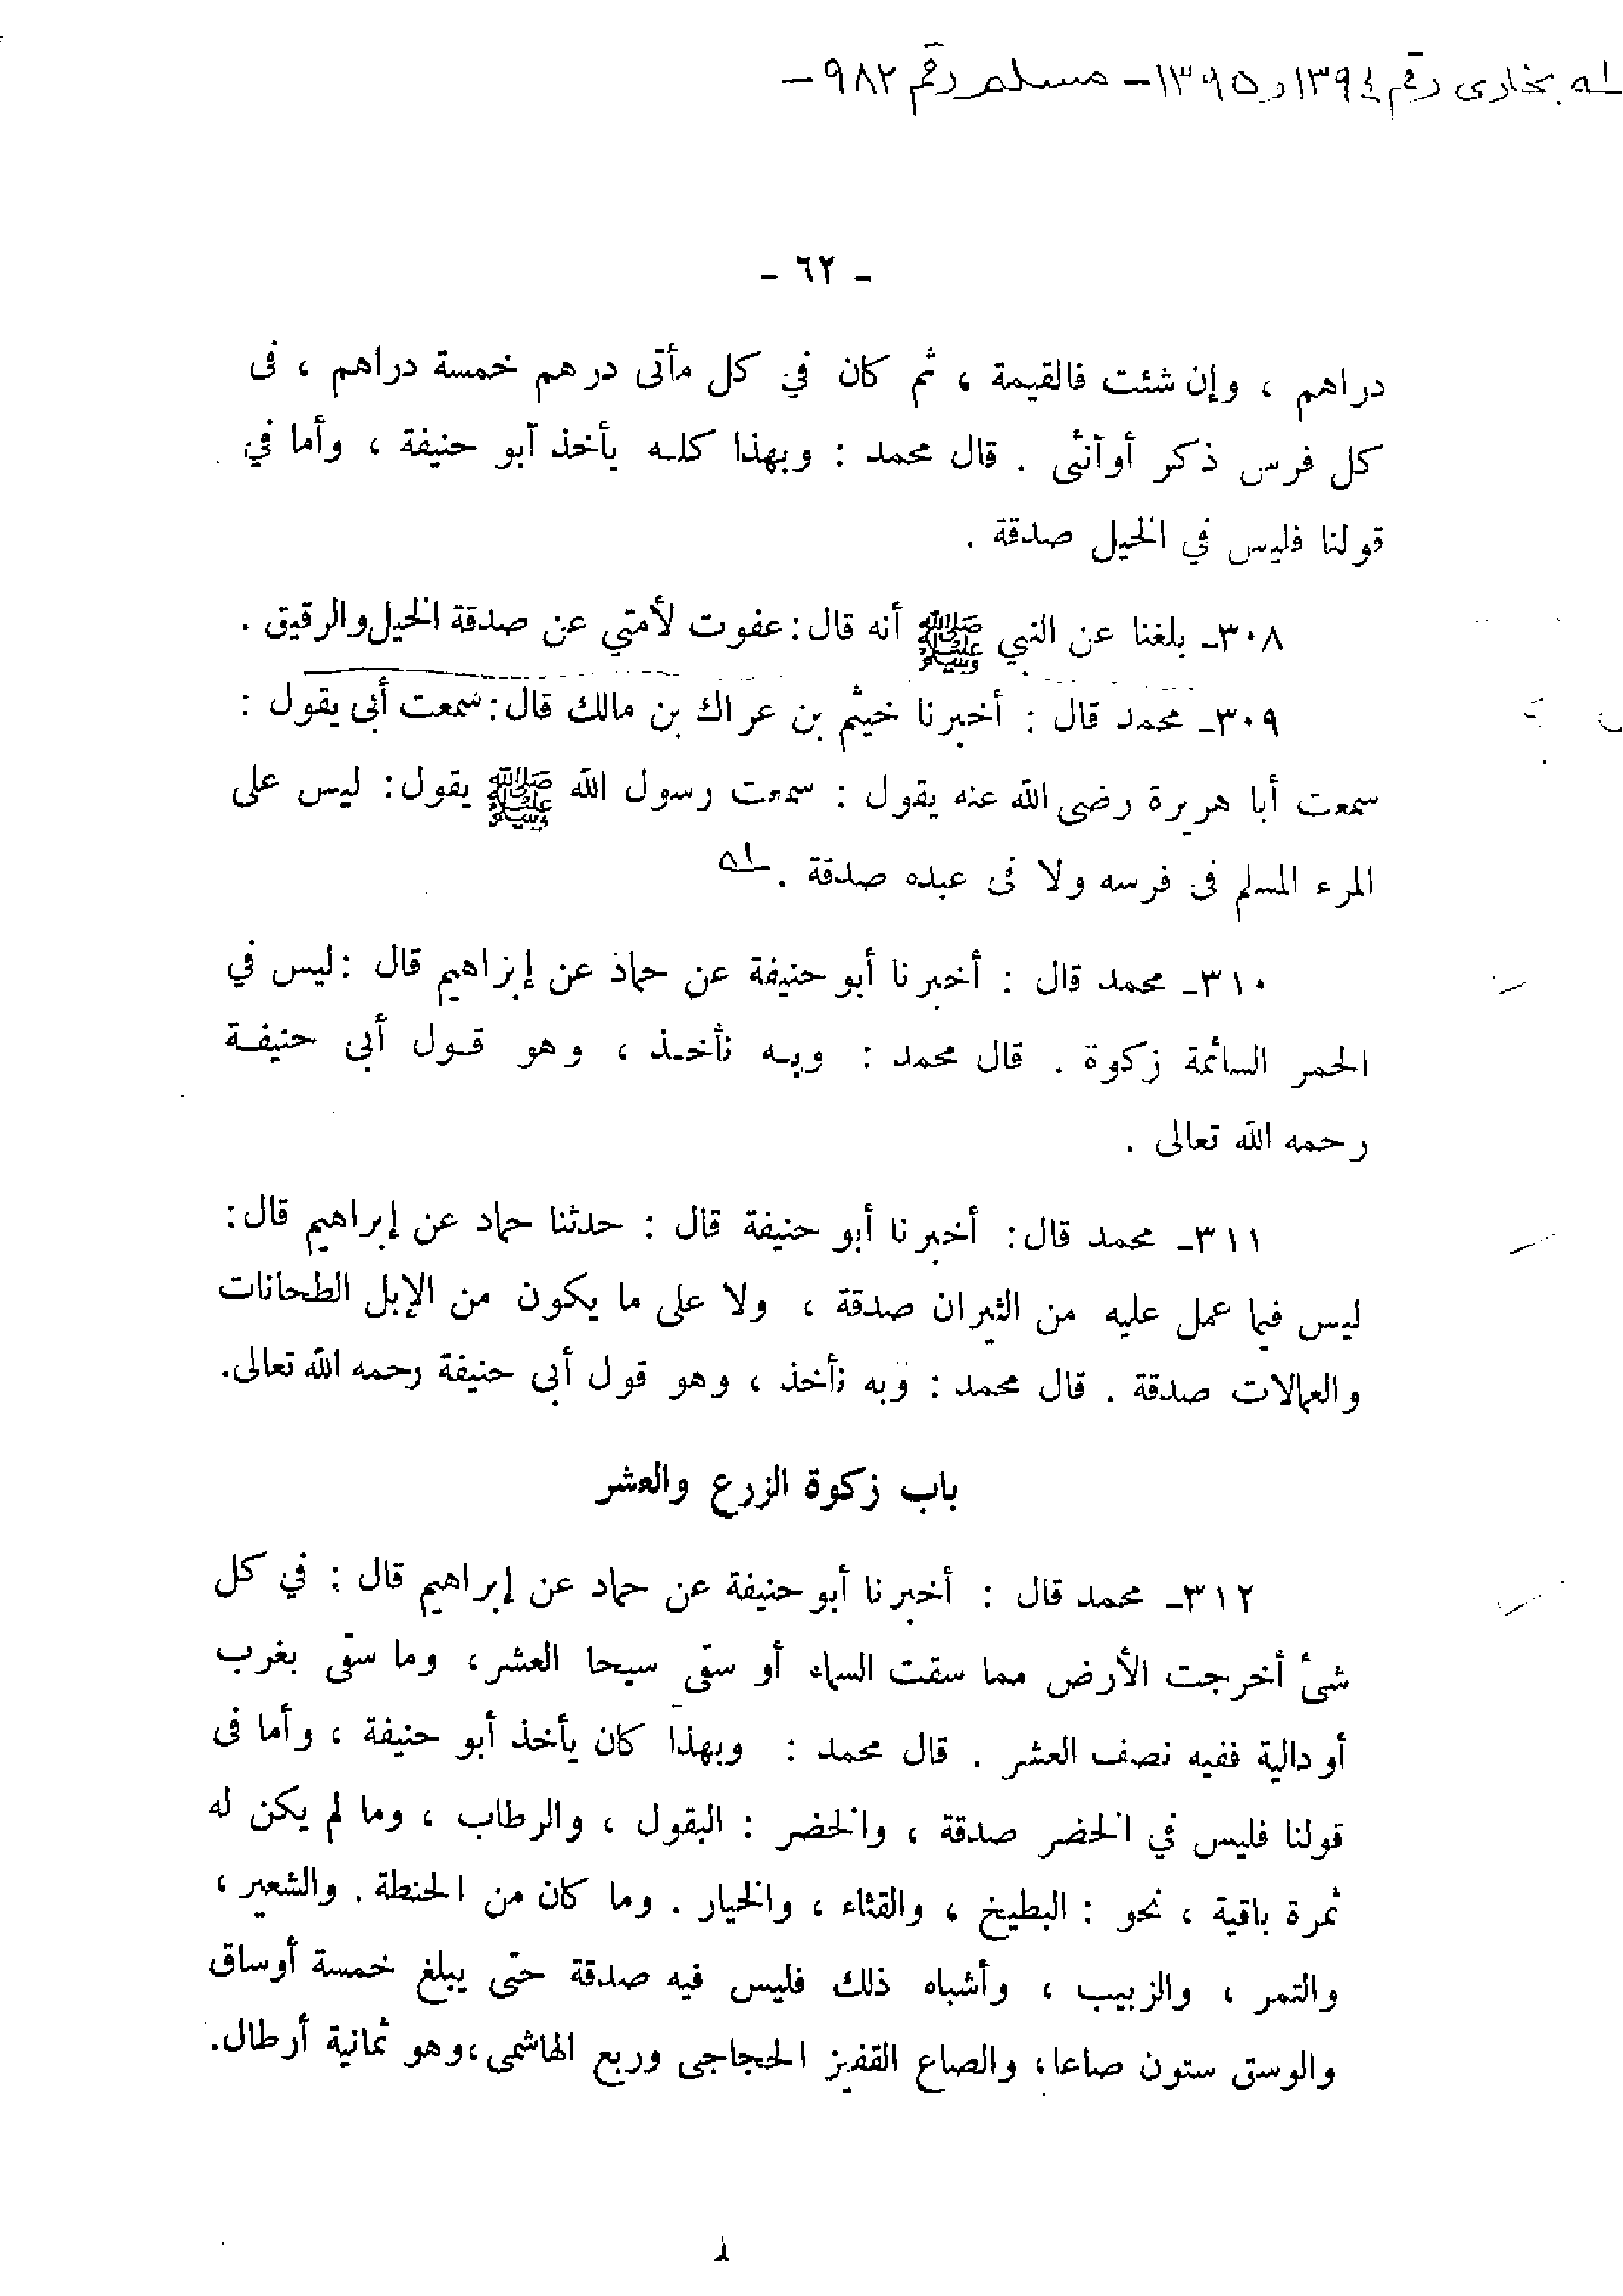 له بخارى رقم ١٣٩٤ و ١٣٩٥ - مسلم رقم ٩٨٢ -
- ٦٢ -
دراهم ، وإن شئت فالقيمة ، ثم كان في كل مأتى درهم خمسة دراهم ، فى
كل فرس ذكر أو أنثى . قال محمد : وبهذا كله يأخذ أبو حنيفة ، وأما في
قولنا فليس في الخيل صدقة .
٣٠٨- بلغنا عن النبي ﷺ أنه قال : عفوت لأمتي عن صدقة الخيل والرقيق .
٣٠٩- محمد قال : أخبرنا خيثم بن عراك بن مالك قال : سمعت أبى يقول :
سمعت أبا هريرة رضى الله عنه يقول : سمعت رسول الله ﷺ يقول : ليس على
المرء المسلم فى فرسه ولا فى عبده صدقة . له
٣١٠- محمد قال : أخبرنا أبو حنيفة عن حماد عن إبراهيم قال : ليس في
الحمر السائمة زكوة . قال محمد : وبه نأخذ ، وهو قول أبى حنيفة
رحمه الله تعالى .
٣١١- محمد قال : أخبرنا أبو حنيفة قال : حدثنا حماد عن إبراهيم قال :
ليس فيما عمل عليه من الثيران صدقة ، ولا على ما يكون من الإبل الطحانات
والعمالات صدقة . قال محمد : وبه نأخذ ، وهو قول أبى حنيفة رحمه الله تعالى.
باب زكوة الزرع والعشر
٣١٢- محمد قال : أخبرنا أبو حنيفة عن حماد عن إبراهيم قال : في كل
شئ أخرجت الأرض مما سقت السماء أو سقى سيحا العشر ، وما سقى بغرب
أو دالية ففيه نصف العشر . قال محمد : وبهذا كان يأخذ أبو حنيفة ، وأما فى
قولنا فليس في الخضر صدقة ، والخضر : البقول ، والرطاب ، وما لم يكن له
ثمرة باقية ، نحو : البطيخ ، والقثاء ، والخيار . وما كان من الحنطة . والشعير ،
والتمر ، والزبيب ، وأشباه ذلك فليس فيه صدقة حتى يبلغ خمسة أوساق
والوسق ستون صاعا ، والصاع القفيز الحجاجى وربع الهاشمى ، وهو ثمانية أرطال.